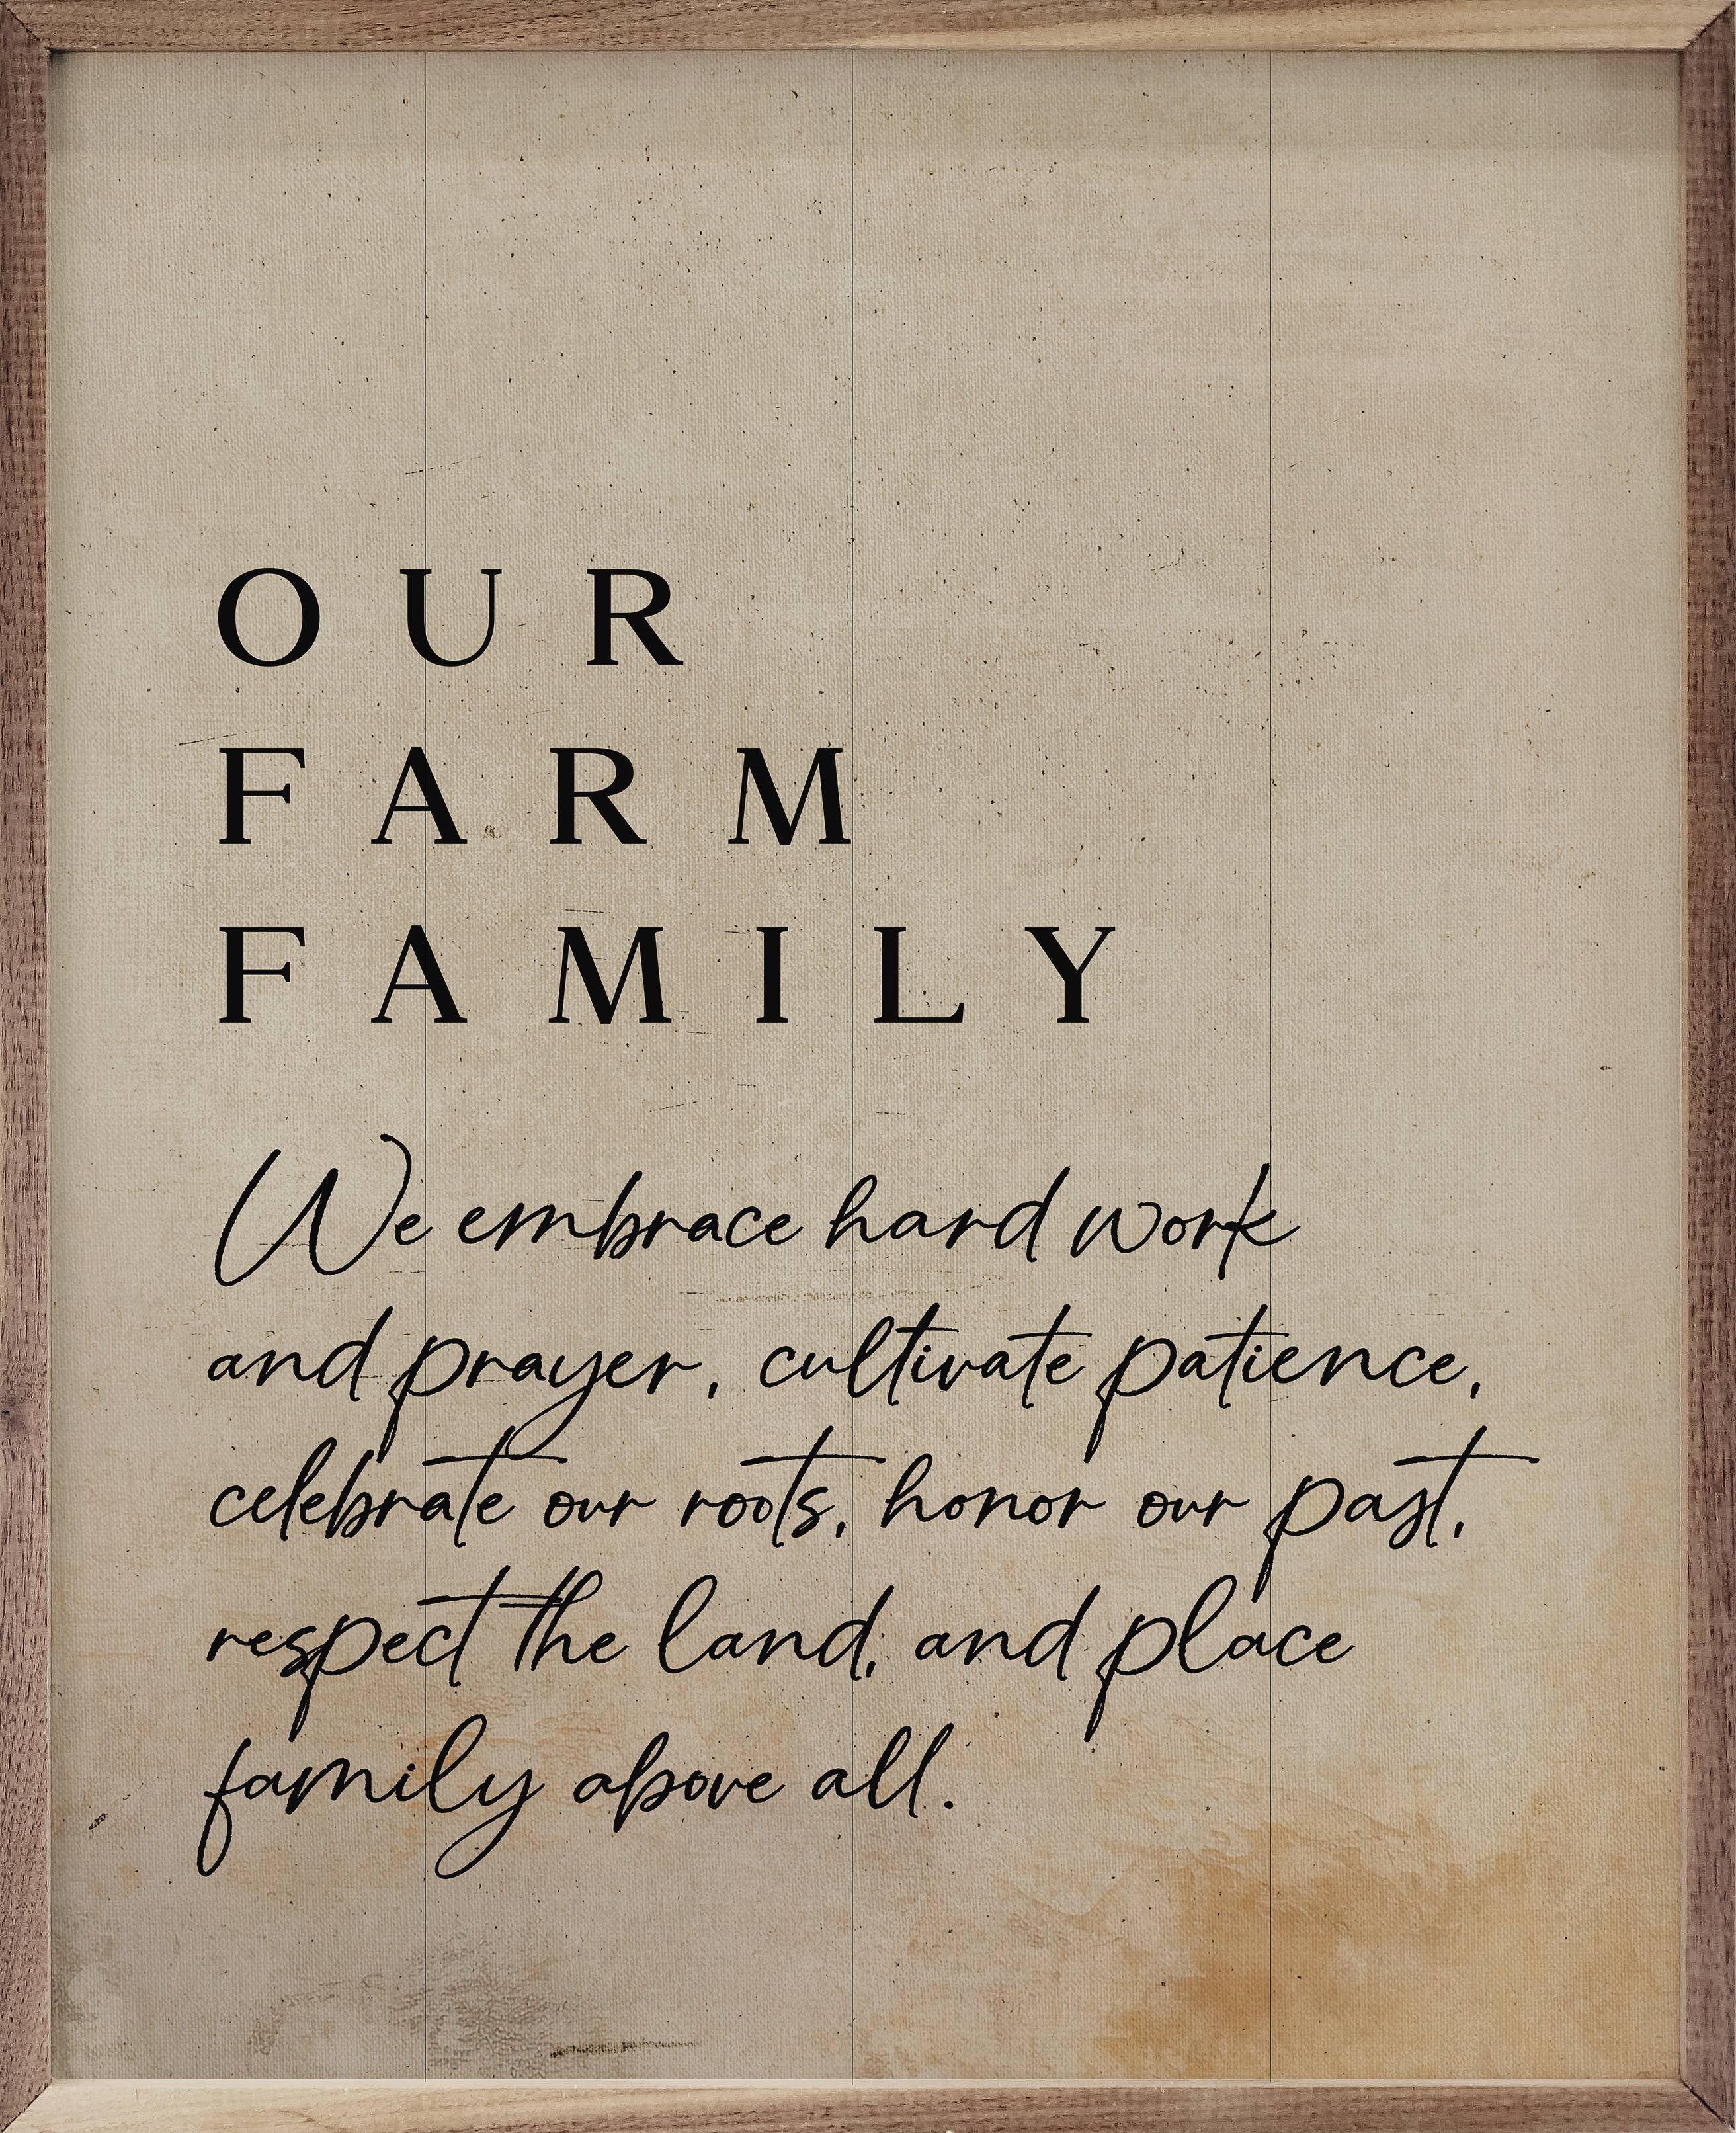 OUR
FARM
FAMILY
We embrace hard work
and prayer, cultivate patience,
celebrate our roots, honor our past,
respect the land, and place
family above all.